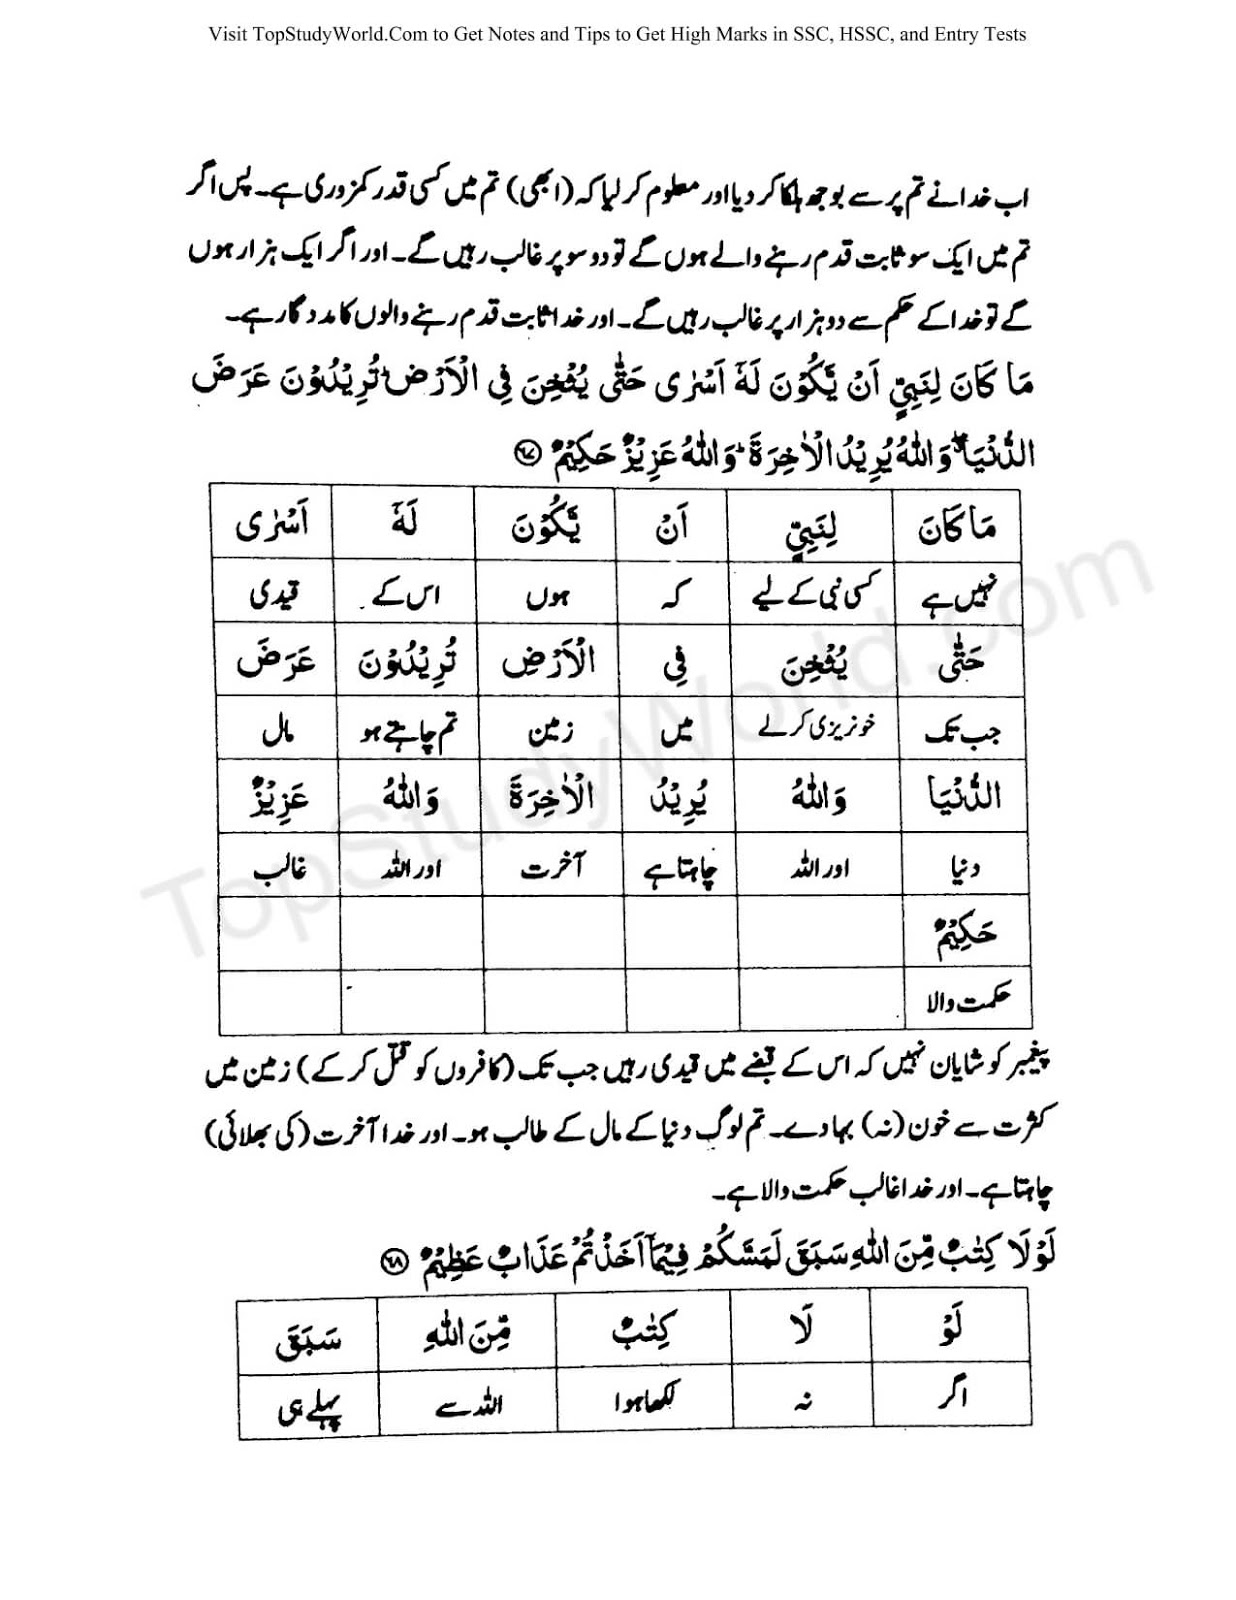 Visit TopStudyWorld.Com to Get Notes and Tips to Get High Marks in SSC, HSSC, and Entry Tests
اب خدا نے تم پر سے بوجھ ہلکا کر دیا اور معلوم کر لیا کہ (ابھی) تم میں کسی قدر کمزوری ہے۔ پس اگر
تم میں ایک سو ثابت قدم رہنے والے ہوں گے تو دو سو پر غالب رہیں گے۔ اور اگر ایک ہزار ہوں
گے تو خدا کے حکم سے دو ہزار پر غالب رہیں گے۔ اور خدا ثابت قدم رہنے والوں کا مدد گار ہے۔
مَا كَانَ لِنَبِيٍّ اَنْ يَّكُوْنَ لَهٗٓ اَسْرٰى حَتّٰى يُثْخِنَ فِي الْاَرْضِ ؕ تُرِيْدُوْنَ عَرَضَ
الدُّنْيَا ۖ وَاللّٰهُ يُرِيْدُ الْاٰخِرَةَ ؕ وَاللّٰهُ عَزِيْزٌ حَكِيْمٌ ۝۶۷
مَا كَانَ لِنَبِيٍّ اَنْ يَّكُوْنَ لَهٗٓ اَسْرٰى
نہیں ہے کسی نبی کے لیے کہ ہوں اس کے قیدی
حَتّٰى يُثْخِنَ فِي الْاَرْضِ تُرِيْدُوْنَ عَرَضَ
جب تک خونریزی کرلے میں زمین تم چاہتے ہو مال
الدُّنْيَا وَاللّٰهُ يُرِيْدُ الْاٰخِرَةَ وَاللّٰهُ عَزِيْزٌ
دنیا اور اللہ چاہتا ہے آخرت اور اللہ غالب
حَكِيْمٌ
حکمت والا
پیغمبر کو شایان نہیں کہ اس کے قبضے میں قیدی رہیں جب تک (کافروں کو قتل کر کے) زمین میں
کثرت سے خون (نہ) بہا دے۔ تم لوگ دنیا کے مال کے طالب ہو۔ اور خدا آخرت (کی بھلائی)
چاہتا ہے۔ اور خدا غالب حکمت والا ہے۔
لَوْ لَا كِتٰبٌ مِّنَ اللّٰهِ سَبَقَ لَمَسَّكُمْ فِيْمَآ اَخَذْتُمْ عَذَابٌ عَظِيْمٌ ۝۶۸
لَوْ لَا كِتٰبٌ مِّنَ اللّٰهِ سَبَقَ
اگر نہ لکھا ہوا اللہ سے پہلے ہی
TopStudyWorld.com